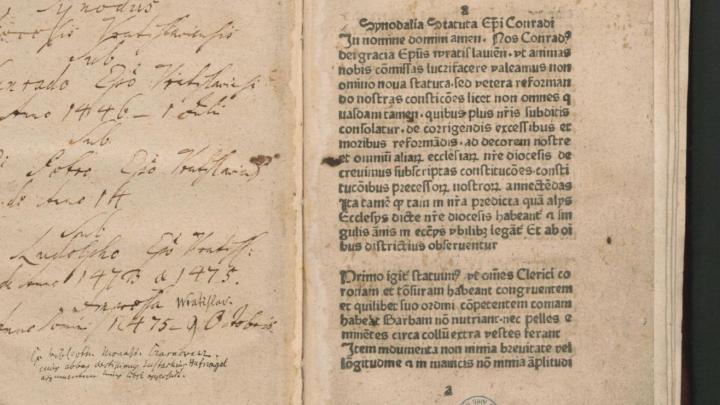 Synodus
Vratislaviensis
Sub
Conrado Epō Vratislaviensi
Anno 1446 – 1 Juli
Sub
Petro Epō Vratislaviensi
de Anno 14
Sub
Rudolpho Epō Vratisl:
de Anno 1473 & 1475.
Wratislav.
Anno Domini 1475 – 9 Octobris
Ex biblioth. Monast.
cuius abbas Eustachius Hufnagel
argumentum huius libri
a
Synodalia Statuta Ep̄i Conradi
In nomine domini amen · Nos Conradꝰ
dei gracia Ep̄us wratislauień · vt animas
nobis cōmissas lucrifacere valeamus non
omnino noua statuta · sed vetera reforman
do nostras constitcōes licet non omnes q
uasdam tamen · quibus plus nr̄is subditis
consolatur · de corrigendis excessibus et
moribus reformādis · ad decorem nostre
et omniū aliaꝝ ecclesiaꝝ nr̄e diocesis de
creuimus subscriptas constitucōes · consti
tucōibus p̄cessoꝝ nostroꝝ annectēdas
Ita tamē ꝙ tam in nr̄a predicta quā alys
Ecclesys dicte nr̄e diocesis habeant᷑ ⁊ sin
gulis ānis in ecc̄ys ꝑbilibꝫ legāt᷑ Et ab oī
bus districtius obseruentur
Primo igit᷑ statuimꝰ vt om̄es Clerici co
ronam et tōsuram habeant congruentem
et quilibet suo ordini cōpetentem comam
habeat Barbam nō nutriant · nec pelles e
minētes circa collū extra vestes ferant
Item indumenta non nimia breuitate vel
lōgitudine ⁊ in manicis nō nimia āplitudi
a